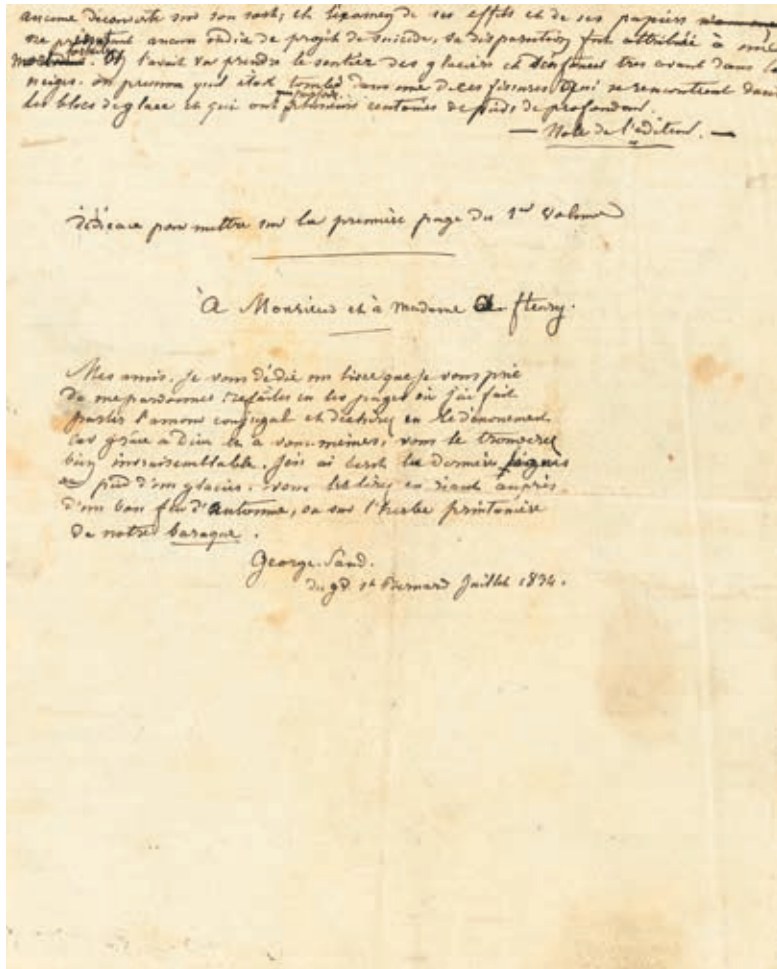 aucune découverte sur son sort; et l'examen de ses effets et de ses papiers
ne présentant aucun indice de projet de suicide, sa disparition fut attribuée à une
mort fortuite. On l'avait vu prendre le sentier des glaciers et s'enfoncer très avant dans les
neiges. on présuma qu'il était tombé dans une de ces fissures qui se rencontrent dans
les blocs de glace et qui ont parfois plusieurs centaines de pieds de profondeur.
— Note de l'éditeur. —
dédicace pour mettre sur la première page du 1er volume
à Monsieur et à madame A. fleury.
Mes amis. je vous dédie un livre que je vous prie
de me pardonner. les pages où j'ai fait
parler l'amour conjugal et en le dénouement
car grâce à Dieu et à vous-mêmes, vous le trouverez
bien invraisemblable. J'en ai écrit les dernières lignes
au pied d'un glacier. vous les lirez en riant auprès
d'un bon feu d'automne, ou sur l'herbe printanière
de notre baraque.
George Sand.
du gd. st Bernard Juillet 1834.